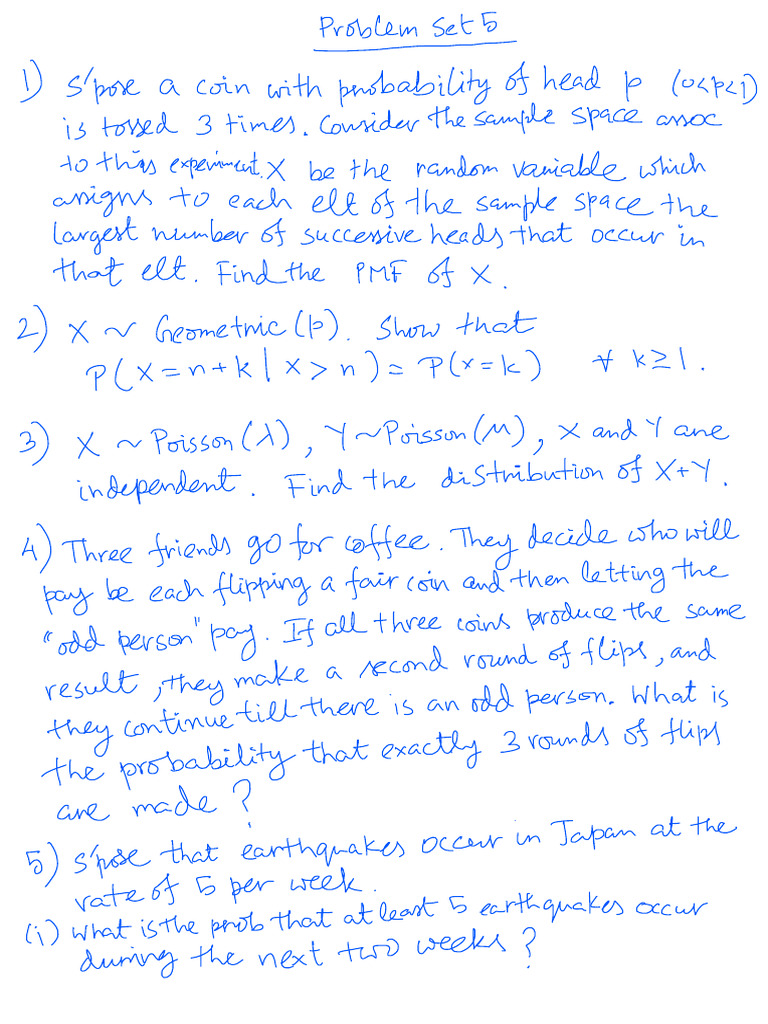 Problem Set 5
1) S'pose a coin with probability of head p (0<p<1)
is tossed 3 times. Consider the sample space assoc
to this experiment. X be the random variable which
assigns to each elt of the sample space the
largest number of successive heads that occur in
that elt. Find the PMF of X.
2) X ~ Geometric (p). Show that
P(X = n+k | X > n) = P(X = k) ∀ k ≥ 1.
3) X ~ Poisson (λ), Y ~ Poisson (μ), X and Y are
independent. Find the distribution of X+Y.
4) Three friends go for coffee. They decide who will
pay be each flipping a fair coin and then letting the
"odd person" pay. If all three coins produce the same
result, they make a second round of flips, and
they continue till there is an odd person. What is
the probability that exactly 3 rounds of flips
are made?
5) S'pose that earthquakes occur in Japan at the
rate of 5 per week.
(i) What is the prob that at least 5 earthquakes occur
during the next two weeks?